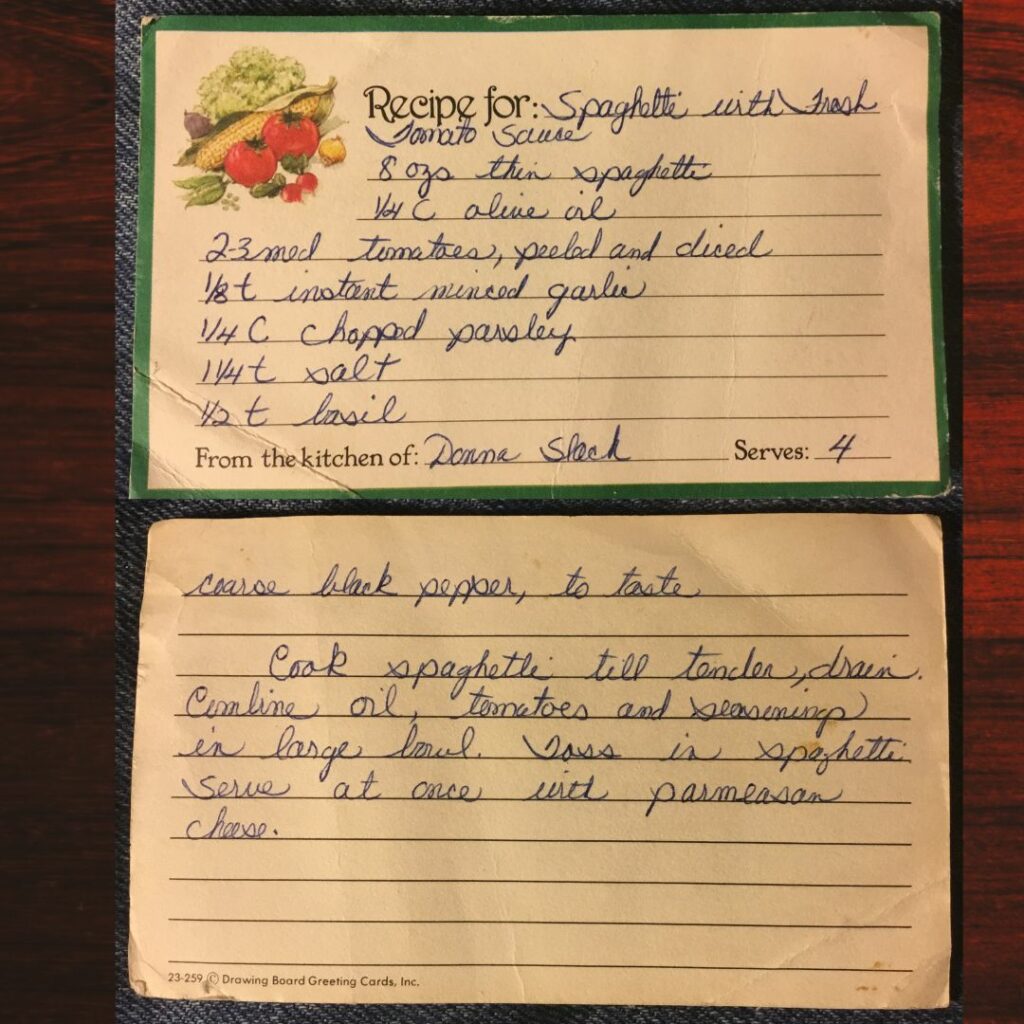 Recipe for: Spaghetti with Frash
Tomato Sauce
8 ozs thin spaghetti
1/4 C olive oil
2-3 med tomatoes, peeled and diced
1/8 t instant minced garlic
1/4 C chopped parsley
1 1/4 t salt
1/2 t basil
From the kitchen of: Donna Slack Serves: 4
coarse black pepper, to taste
Cook spaghetti till tender, drain.
Combine oil, tomatoes and seasonings
in large bowl. Toss in spaghetti
Serve at once with parmeasan
cheese.
23-259 © Drawing Board Greeting Cards, Inc.